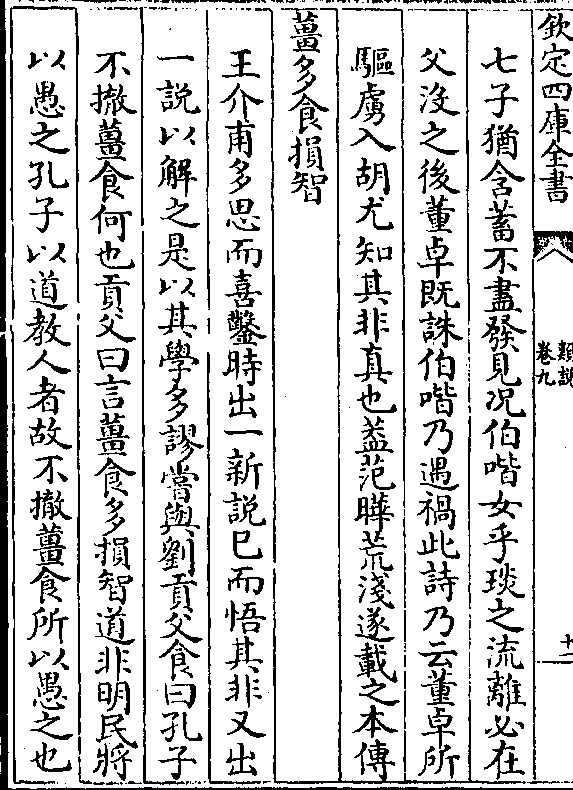 欽定四庫全書
類說
卷九
十二
七子猶含蓄不盡發見况伯喈女乎琰之流離必在
父沒之後董卓既誅伯喈乃遇禍此詩乃云董卓所
驅虜入胡尤知其非真也葢范曄荒淺遂載之本傳
薑多食損智
王介甫多思而喜鑿時出一新說已而悟其非又出
一說以解之是以其學多謬嘗與劉貢父食曰孔子
不撤薑食何也貢父曰言薑食多損智道非明民將
以愚之孔子以道教人者故不撤薑食所以愚之也